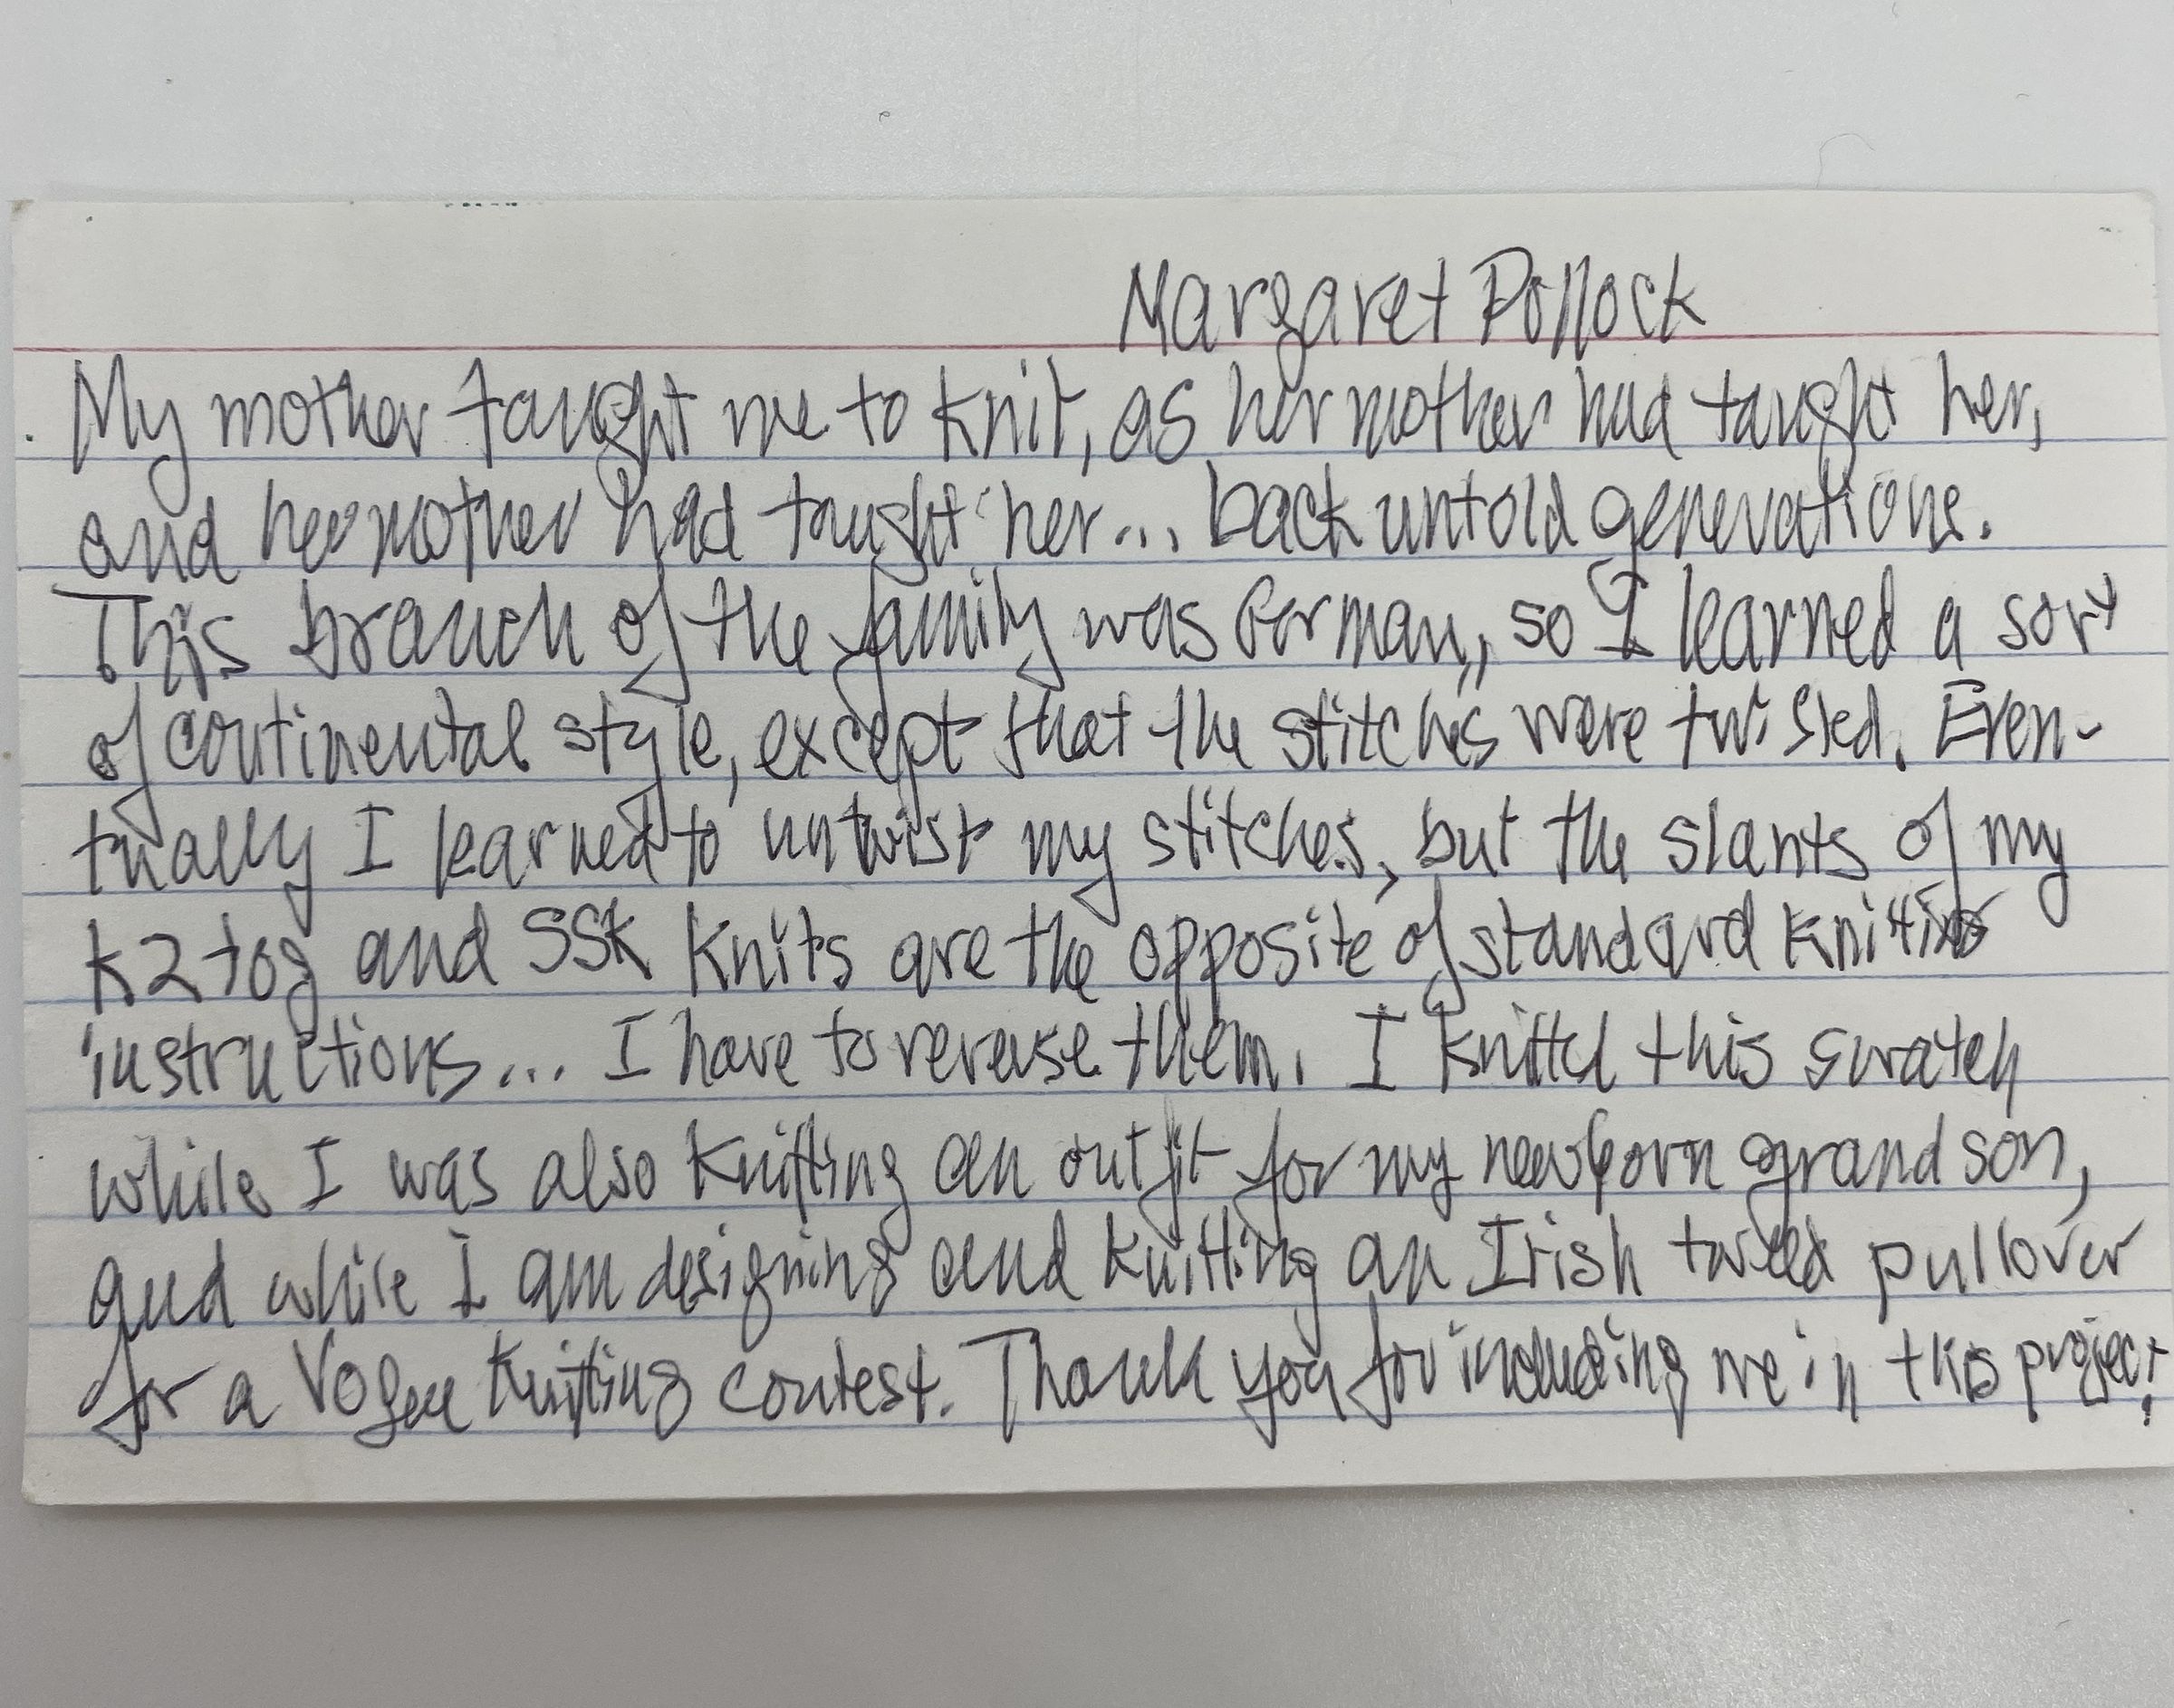 Margaret Pollock
My mother taught me to knit, as her mother had taught her,
and her mother had taught her... back untold generations.
This branch of the family was German, so I learned a sort
of continental style, except that the stitches were twisted. Even-
tually I learned to untwist my stitches, but the slants of my
k2tog and SSK knits are the opposite of standard knitting
instructions... I have to reverse them. I knitted this swatch
while I was also knitting an outfit for my newborn grandson,
and while I am designing and knitting an Irish tweed pullover
for a Vogue Knitting contest. Thank you for including me in this project!